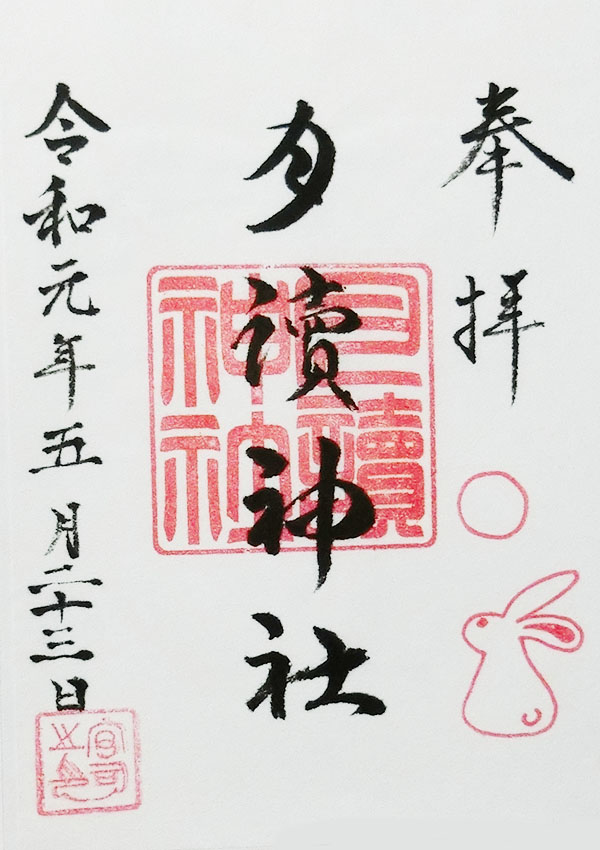 奉拝
月讀神社
月讀神社
令和元年五月二十三日
宮司之印